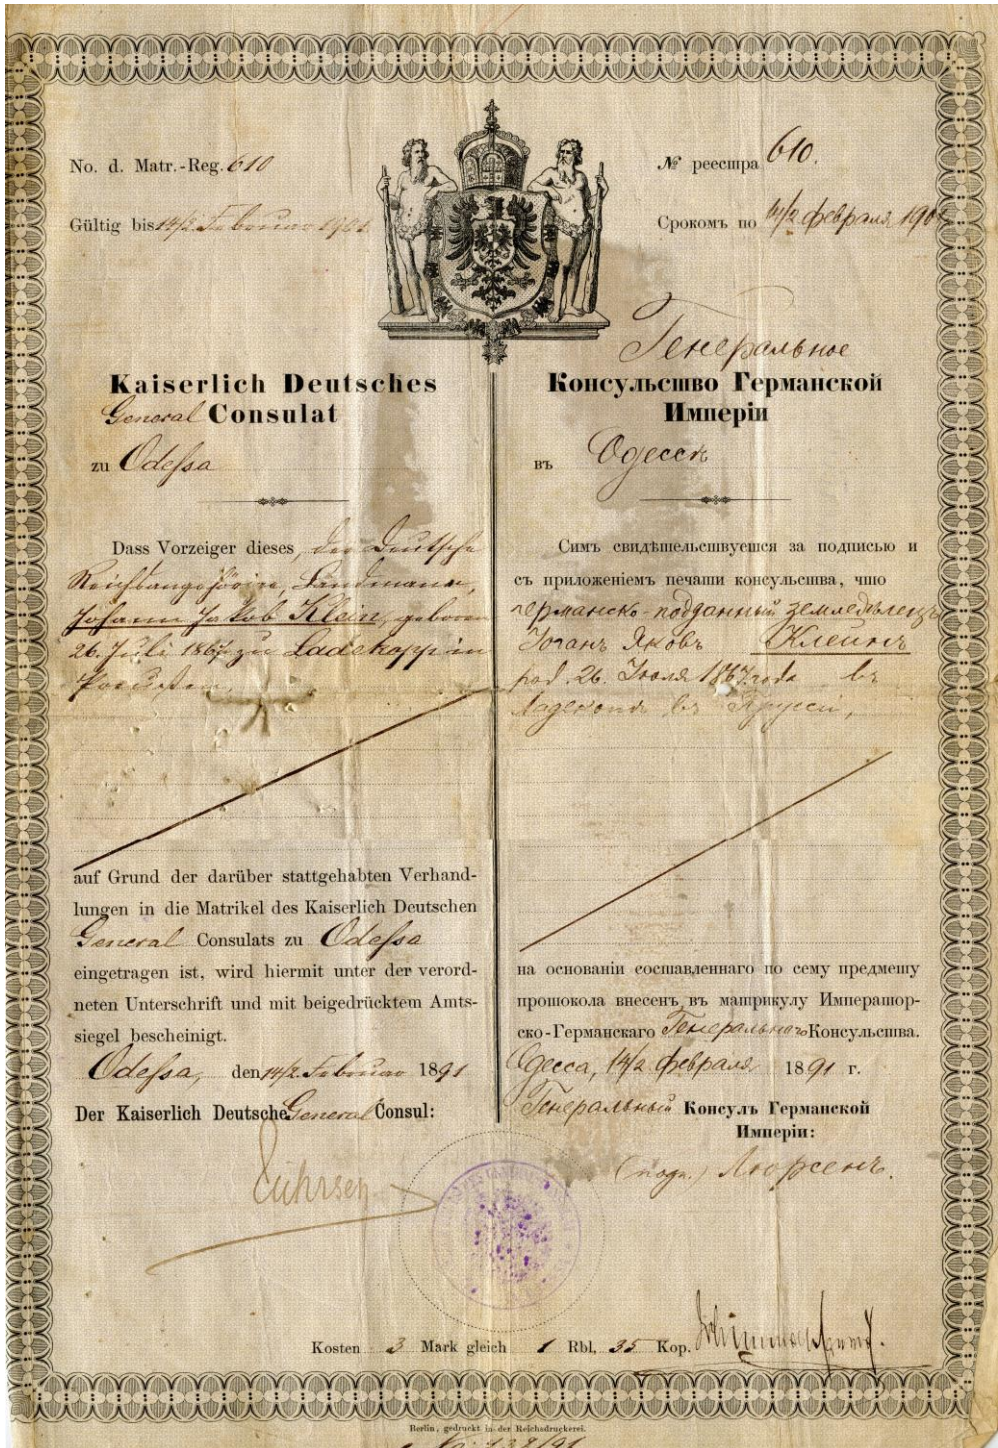 No. d. Matr.-Reg. 610
Gültig bis 14/2 Februar 1901
Kaiserlich Deutsches
General Consulat
zu Odessa
Dass Vorzeiger dieses, der Deutsche
Reichsangehörige, Landmann,
Johann Jakob Klein, geboren
26. Juli 1867 zu Ladekopp in
Preußen,
auf Grund der darüber stattgehabten Verhand-
lungen in die Matrikel des Kaiserlich Deutschen
General Consulats zu Odessa
eingetragen ist, wird hiermit unter der verord-
neten Unterschrift und mit beigedrücktem Amts-
siegel bescheinigt.
Odessa, den 14/2 Februar 1891
Der Kaiserlich Deutsche General Consul:
Lührsen
№ реестра 610.
Срокомъ по 14/2 февраля 1901
Генеральное
Консульство Германской
Имперіи
въ Одессѣ
Симъ свидѣтельствуется за подписью и
съ приложеніемъ печати консульства, что
германско-подданный земледѣлецъ
Іоганъ Яковъ Клейнъ
род. 26. Іюля 1867 года въ
Ладекопъ въ Пруссіи,
на основаніи составленнаго по сему предмету
протокола внесенъ въ матрикулу Император-
ско-Германскаго Генеральнаго Консульства.
Одесса, 14/2 февраля 1891 г.
Генеральный Консулъ Германской
Имперіи:
(подп.) Люрсенъ.
Kosten 3 Mark gleich 1 Rbl, 35 Kop.
Berlin, gedruckt in der Reichsdruckerei.